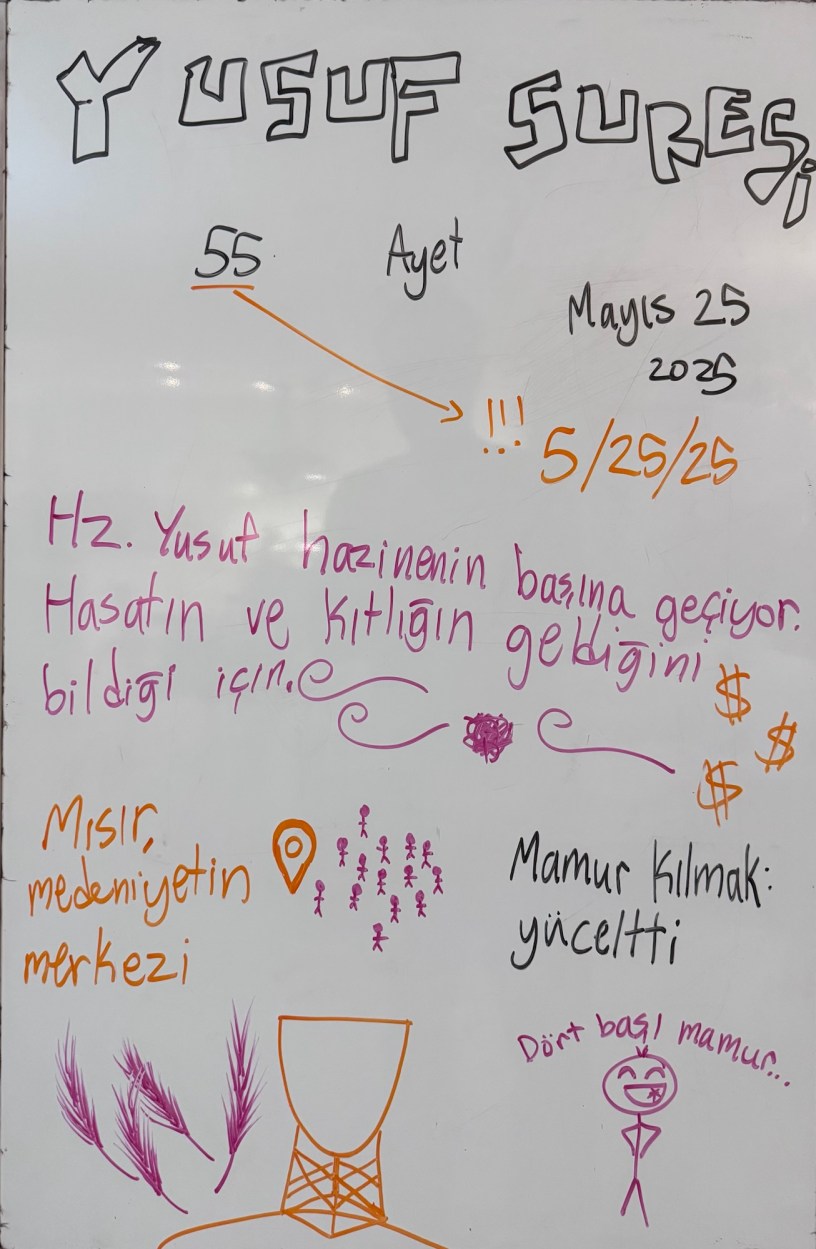 YUSUF SURESi
55 Ayet
Mayıs 25
2025
!!! 5/25/25
Hz. Yusuf hazinenin başına geçiyor.
Hasatın ve kıtlığın geldiğini
bildiği için.
$
$
$
Mısır,
medeniyetin
merkezi
Mamur kılmak:
yüceltti
Dört başı mamur...